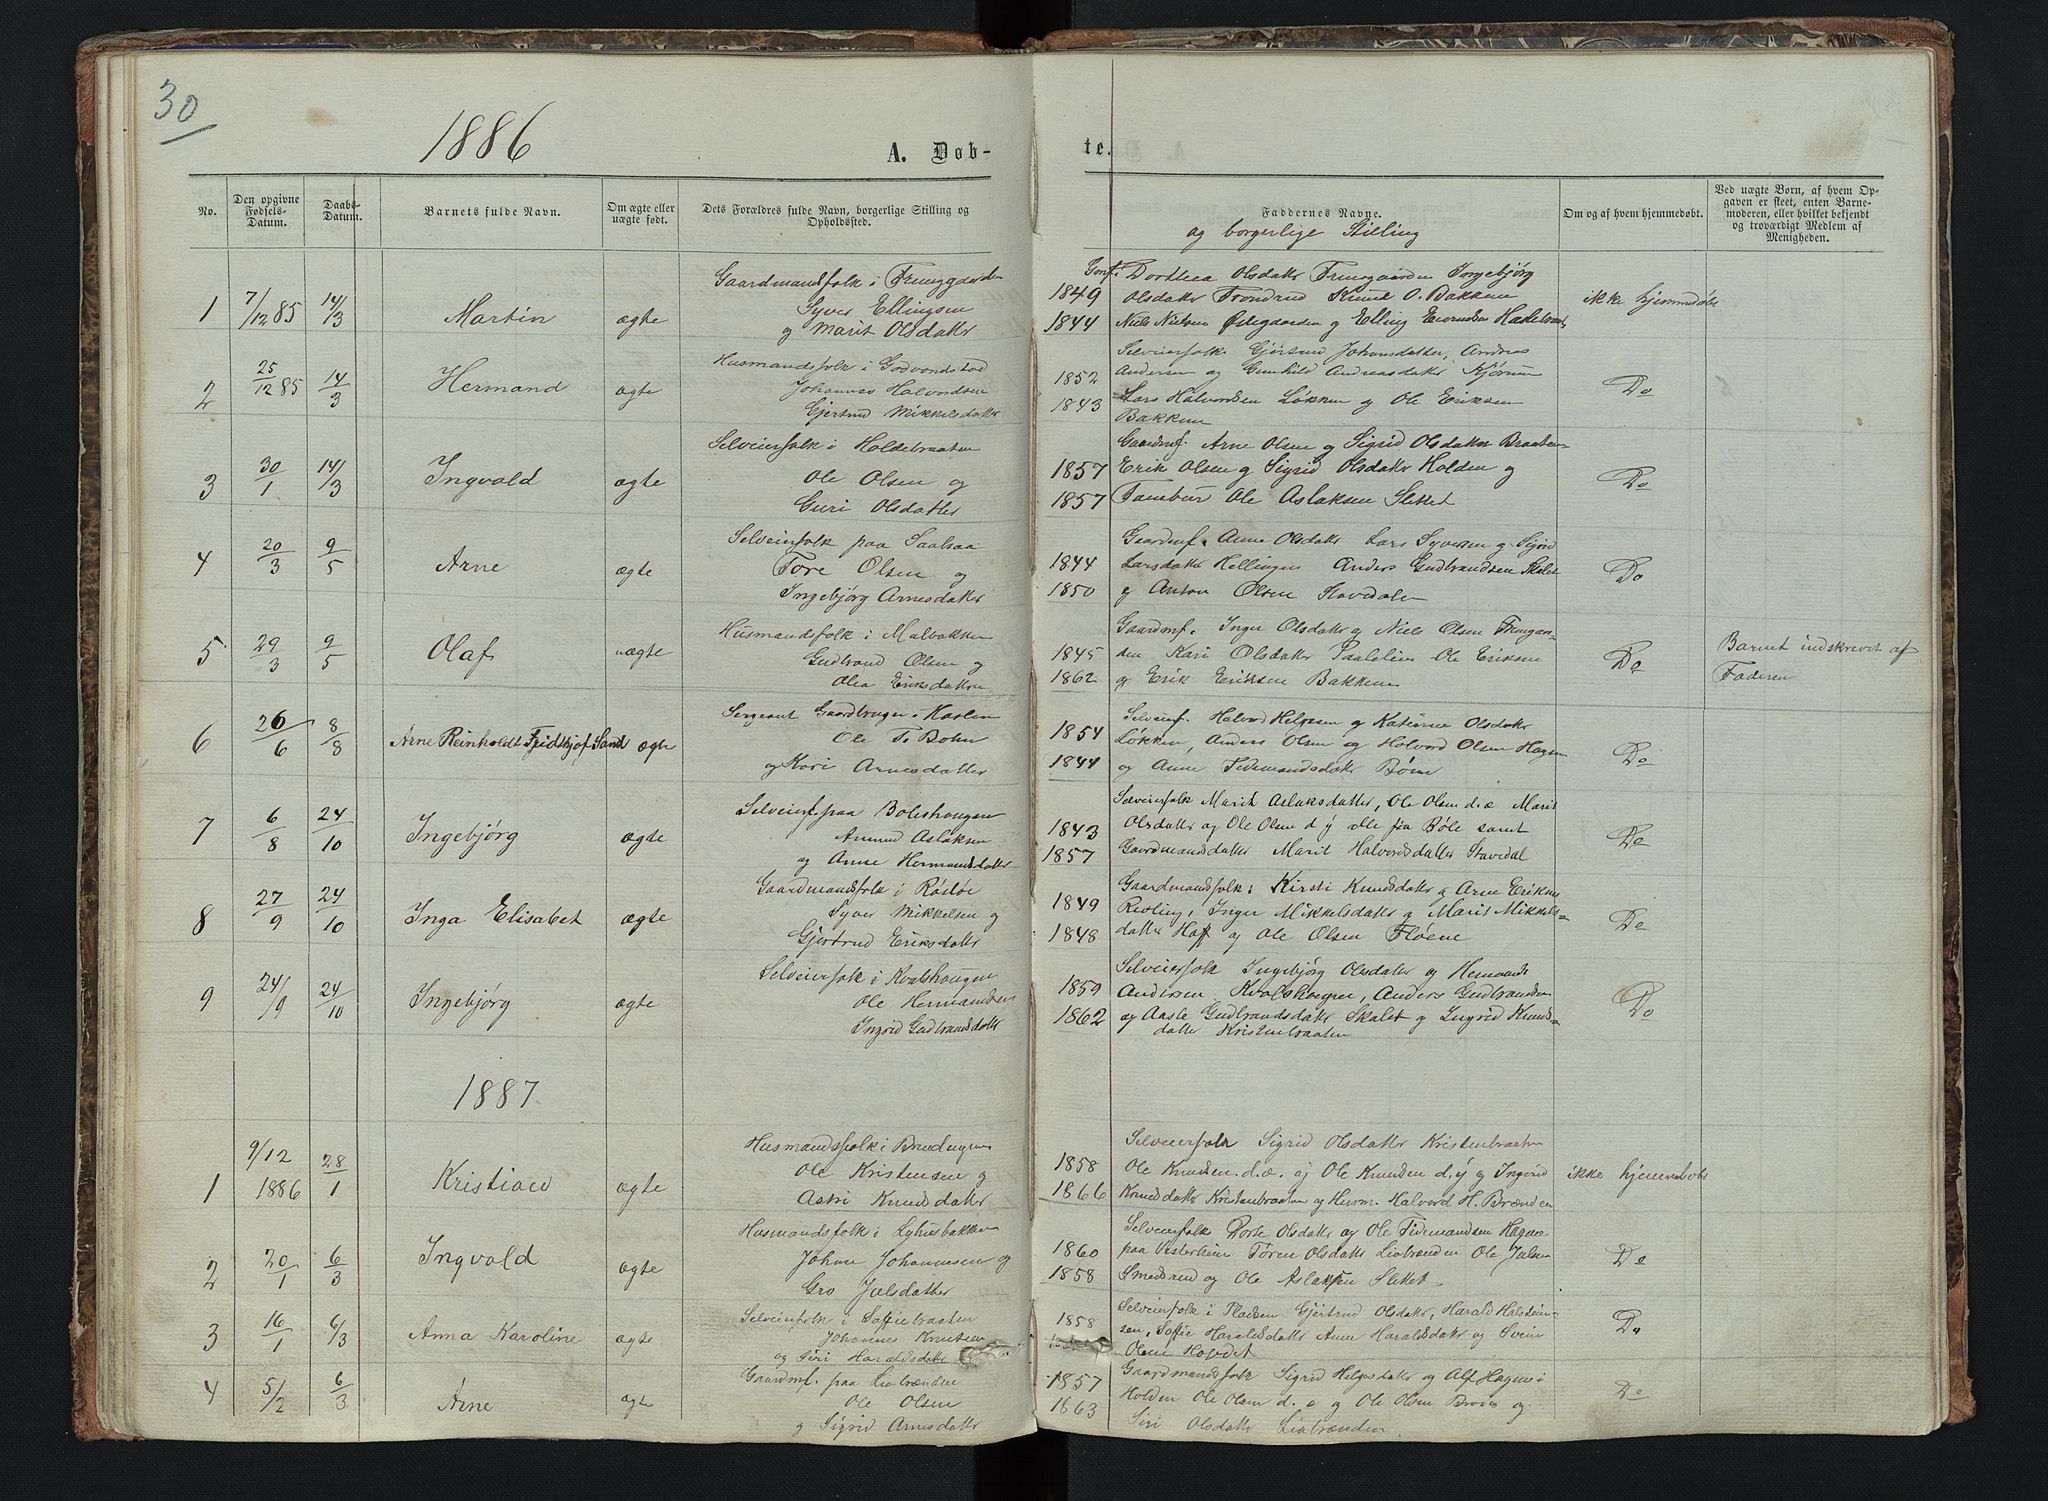 30
1886
A. Døb-
te.
No.
Den opgivne Fødsels-Datum.
Daabs-Datum.
Barnets fulde Navn.
Om ægte eller uægte født.
Dets Forældres fulde Navn, borgerlige Stilling og Opholdssted.
Faddernes Navne.
og borgerlige Stilling
Om og af hvem hjemmedøbt.
Ved uægte Børn, af hvem Op-
gaven er skeet, enten Barne-
moderen, eller hvilket bekjendt
og troværdigt Medlem af
Menigheden.
1 7/12 85 14/3 Martin ægte
Gaardmandsfolk i
Syver Ellingsen
og Marit Olsdatter
1849
1844
Dorthea Olsdatter Ingebjørg
Olsdatter Trondrud Knud O. Bakken
Niels Nielsen og Elling
ikke hjemmedøbt
2 25/12 85 14/3 Hermand ægte
Husmandsfolk i
Johannes Halvordsen
Gjertrud Mikkelsdatter
1852
1843
Selveierfolk Gjertrud Johansdatter, Andreas
Andersen og Gunhild Andreasdatter
Lars Halvordsen Løkken og Ole Eriksen
Bakken
Do
3 30/1 14/3 Ingvald ægte
Selveierfolk i Holdebraaten
Ole Olsen og
Guri Olsdatter
1857
1857
Gaardmf. Arne Olsen og Sigrid Olsdatter Braaten
Erik Olsen og Sigrid Olsdatter Holden og
Tambur Ole Aslaksen Slettet
Do
4 20/3 9/5 Arne ægte
Selveierfolk paa
Tore Olsen og
Ingebjørg Arnesdatter
1844
1850
Gaardmf. Anne Olsdatter Lars Syversen og Sigrid
Larsdatter Hellingen Anders Gudbrandsen Skalet
og Anton Olsen
Do
5 29/3 9/5 Olaf uægte
Husmandsfolk i Malbakken
Gudbrand Olsen og
Olea Eriksdatter
1845
1862
Gaardmf. Inger Olsdatter og Niels Olsen
Kari Olsdatter Ole Eriksen
og Erik Eriksen Bakken
Do
Barnet indskrevet af
Faderen
6 26/6 8/8 Arne Reinholdt Fridthjof Sand ægte
Sergeant Gaardbruger i Haslen
Ole T. Bohn
og Kari Arnesdatter
1854
1844
Selveierf. Halvord Helgesen og Katrine Olsdatter
Løkken, Anders Olsen og Halvord Olsen Hagen
og Anne Tidemandsdatter
Do
7 6/8 24/10 Ingebjørg ægte
Selveierf. paa Boleshaugen
Amund Aslaksen
og Anne Hermandsdatter
1843
1857
Selveierfolk Marit Aslaksdatter, Ole Olsen d.æ Marit
Olsdatter og Ole Olsen d y alle fra Bøle samt
Gaardmandsdatter Marit Halvordsdatter Stavedal
Do
8 27/9 24/10 Inga Elisabet ægte
Gaardmandsfolk i
Syver Mikkelsen og
Gjertrud Eriksdatter
1849
1848
Gaardmandsfolk: Kirsti Knudsdatter og Arne Eriksen
Revling, Inger Mikkelsdatter og Marit Mikkels-
datter Hof og Ole Olsen Fløene
Do
9 24/9 24/10 Ingebjørg ægte
Selveierfolk i Kvalshaugen
Ole Hermandsen
Ingrid Gudbrandsdatter
1859
1862
Selveierfolk Ingebjørg Olsdatter og Hermand
Andersen Kvalshaugen, Anders Gudbrandsen
og Aasle Gudbrandsdatter Skalet og Ingrid Knuds-
datter Kristenbraaten
Do
1887
1 9/12 1886 28/1 Kristian ægte
Husmandsfolk i
Ole Kristensen og
Astri Knudsdatter
1858
1866
Selveierfolk Sigrid Olsdatter Kristenbraaten
Ole Knudsen d.æ. og Ole Knudsen d.y og Ingrid
Knudsdatter Kristenbraaten og Husm. Halvord H. Brænden
ikke hjemmedøbt
2 20/1 6/3 Ingvald ægte
Husmandsfolk i
Johan Johannesen og
Gro Joelsdatter
1860
1858
Selveierfolk Dorte Olsdatter og Ole Tidemandsen Hagen
paa Vesterlien Tøren Olsdatter Liabrænden Ole
Smedsrud og Ole Aslaksen Slettet
Do
3 16/1 6/3 Anna Karoline ægte
Selveierfolk i Soffiebraaten
Johannes Knutsen
og Siri Haraldsdatter
1858
Selveierfolk i Pladsen Gjertrud Olsdatter, Harald Halstein-
sen, Soffie Haraldsdatter Anne Haraldsdatter og Svein
Olsen
Do
4 5/2 6/3 Arne ægte
Gaardmf. paa Liabrænden
Ole Olsen
og Sigrid Arnesdatter
1857
1863
Gaardmandsfolk Sigrid Helgesdatter og Alf Hagen i
Holden Ole Olsen d. æ og Ole Olsen og
Siri Olsdatter Liabrænden.
Do